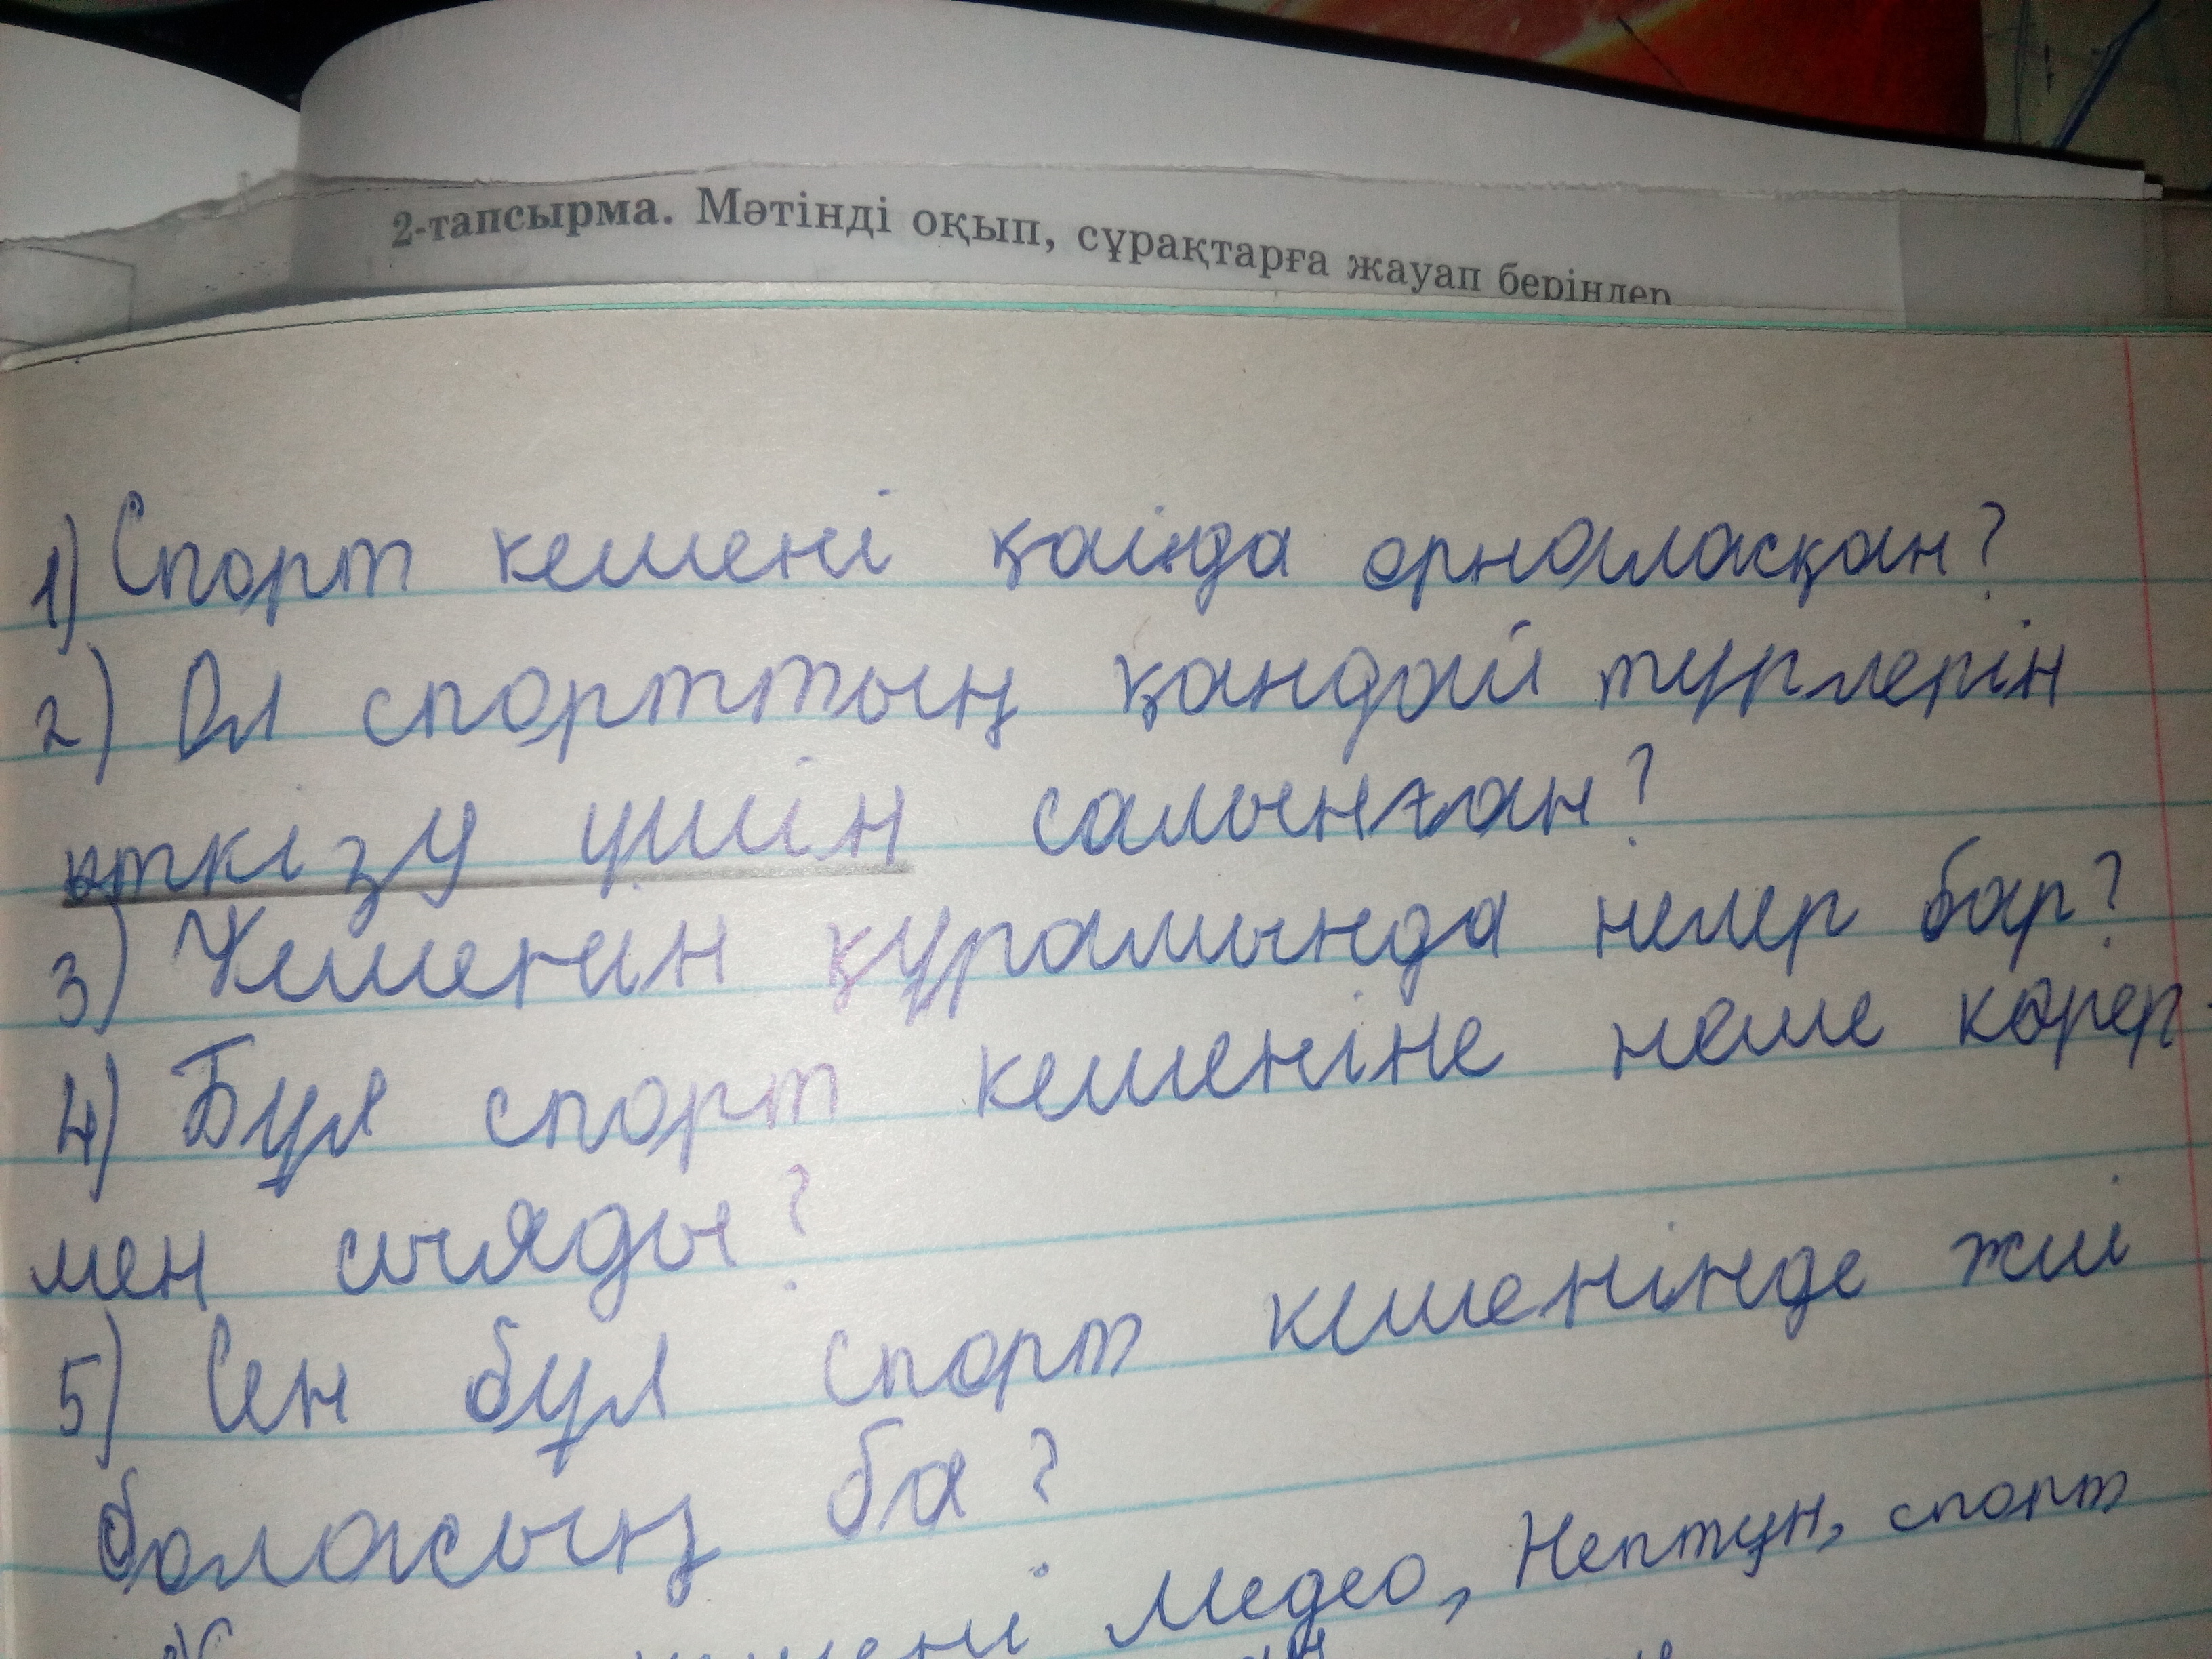 2-тапсырма. Мәтінді оқып, сұрақтарға жауап беріңдер
1) Спорт кешені қайнда орналасқан?
2) Ол спорттың қандай турлерін
өткізу үшін салынған?
3) Кешенін құрамында нелер бар?
4) Бұл спорт кешеніне неше көрер
мен сыяды?
5) Сен бұл спорт кешенінде жиі
боласың ба?
Медео, Нептун, спорт